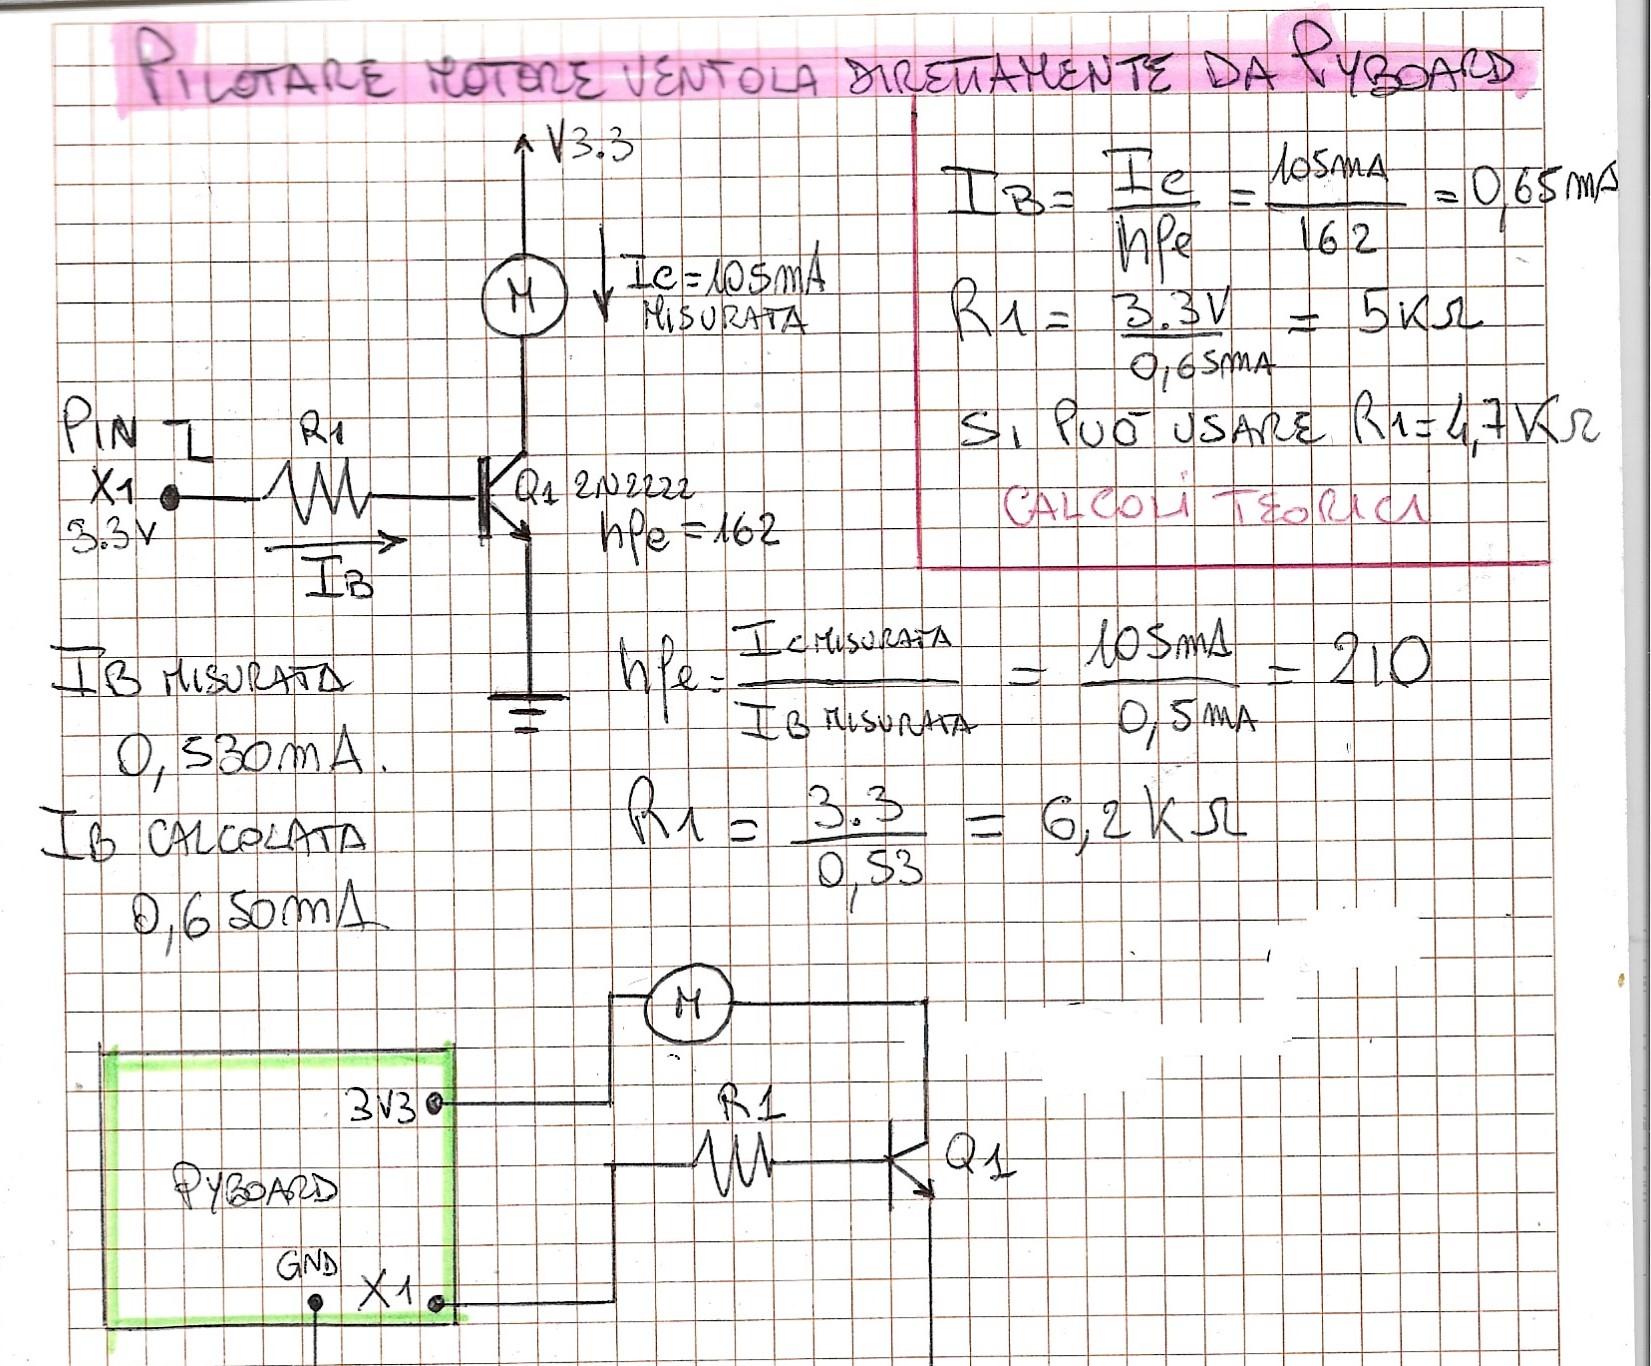 PILOTARE MOTORE VENTOLA DIRETTAMENTE DA PYBOARD
V3.3
M
Ic=105mA
MISURATA
PIN
X1
3.3V
R1
IB
Q1 2N2222
hfe=162
IB = Ic/hfe = 105mA/162 = 0,65mA
R1 = 3.3V/0,65mA = 5KΩ
Si PUÒ USARE R1=4,7KΩ
CALCOLI TEORICI
IB MISURATA
0,530mA.
IB CALCOLATA
0,650mA
hfe = Ic MISURATA/IB MISURATA = 105mA/0,5mA = 210
R1 = 3.3/0,53 = 6,2KΩ
M
3V3
R1
Q1
PYBOARD
GND
X1